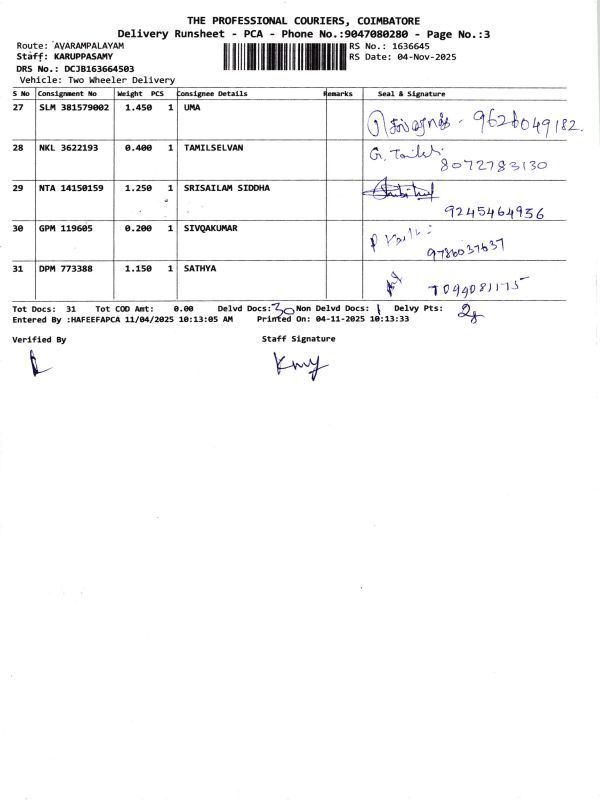 THE PROFESSIONAL COURIERS, COIMBATORE
Delivery Runsheet - PCA - Phone No.:9047080280 - Page No.:3
Route: AVARAMPALAYAM RS No.: 1636645
Staff: KARUPPASAMY RS Date: 04-Nov-2025
DRS No.: DCJB163664503
Vehicle: Two Wheeler Delivery
S No Consignment No Weight PCS Consignee Details Remarks Seal & Signature
27 SLM 381579002 1.450 1 UMA
28 NKL 3622193 0.400 1 TAMILSELVAN
8072783130
29 NTA 14150159 1.250 1 SRISAILAM SIDDHA
9245464936
30 GPM 119605 0.200 1 SIVQAKUMAR
9786037637
31 DPM 773388 1.150 1 SATHYA
Tot Docs: 31 Tot COD Amt: 0.00 Delvd Docs: 30 Non Delvd Docs: 1 Delvy Pts: 28
Entered By :HAFEEFAPCA 11/04/2025 10:13:05 AM Printed On: 04-11-2025 10:13:33
Verified By Staff Signature